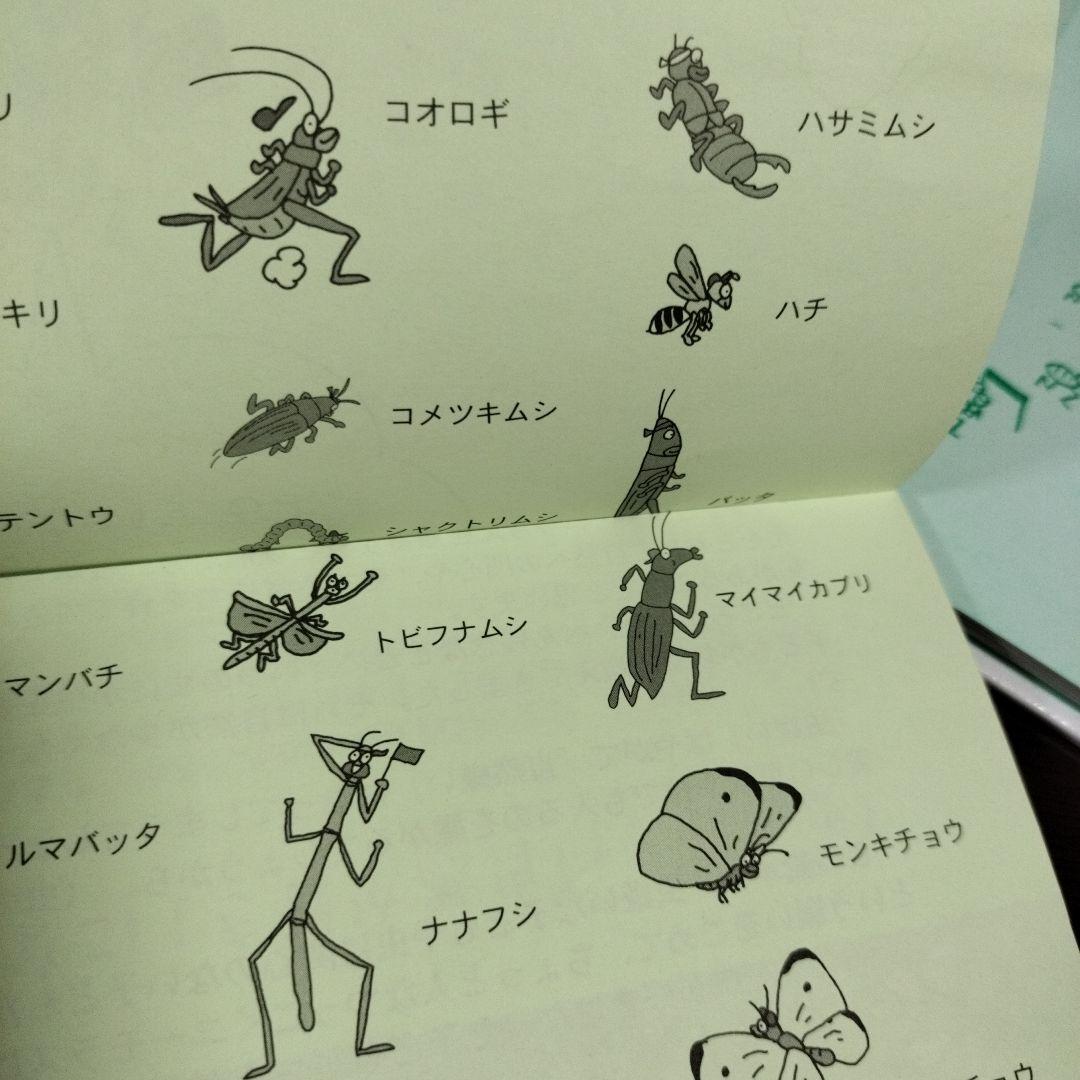 リ
コオロギ
ハサミムシ
キリ
ハチ
コメツキムシ
テントウ
シャクトリムシ
バッタ
マンバチ
トビフナムシ
マイマイカブリ
ルマバッタ
ナナフシ
モンキチョウ
チョウ